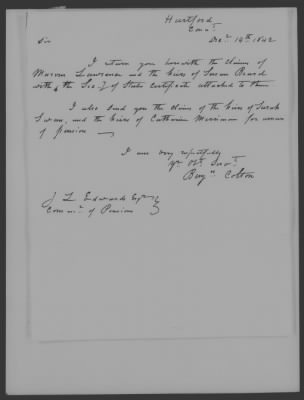 Hartford,
Connt.
Decr 14th 1842
Sir
I return you herewith the claims of
Lawrence and the heirs of Susan Beard
with the Secy of State Certificate attached to them
I also send you the claims of the heirs of Sarah
Swan, and the heirs of Catharine Merriman for arrears
of pension
I am very respectfully
Yr Obt. Servt.
Benjn Colton
J L Edwards Esqr
Commr of Pensions